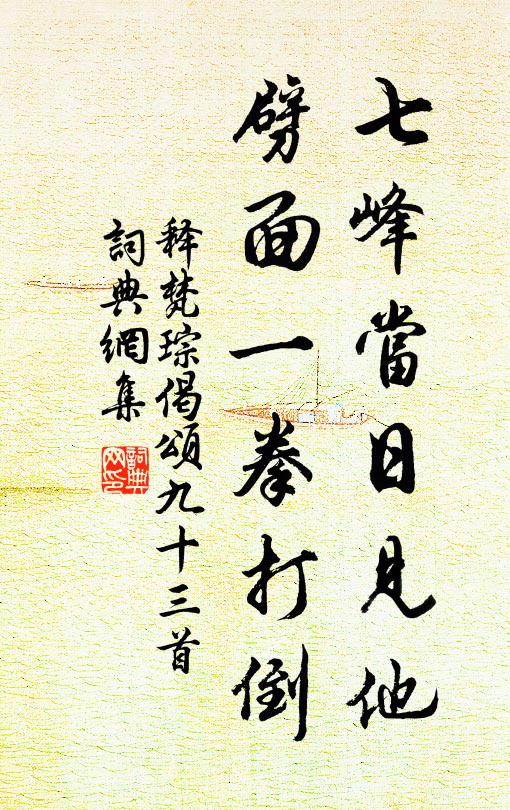 七峰當日見他
劈面一拳打倒
释梵琮偈頌九十三首
詞典網集
詞典網印